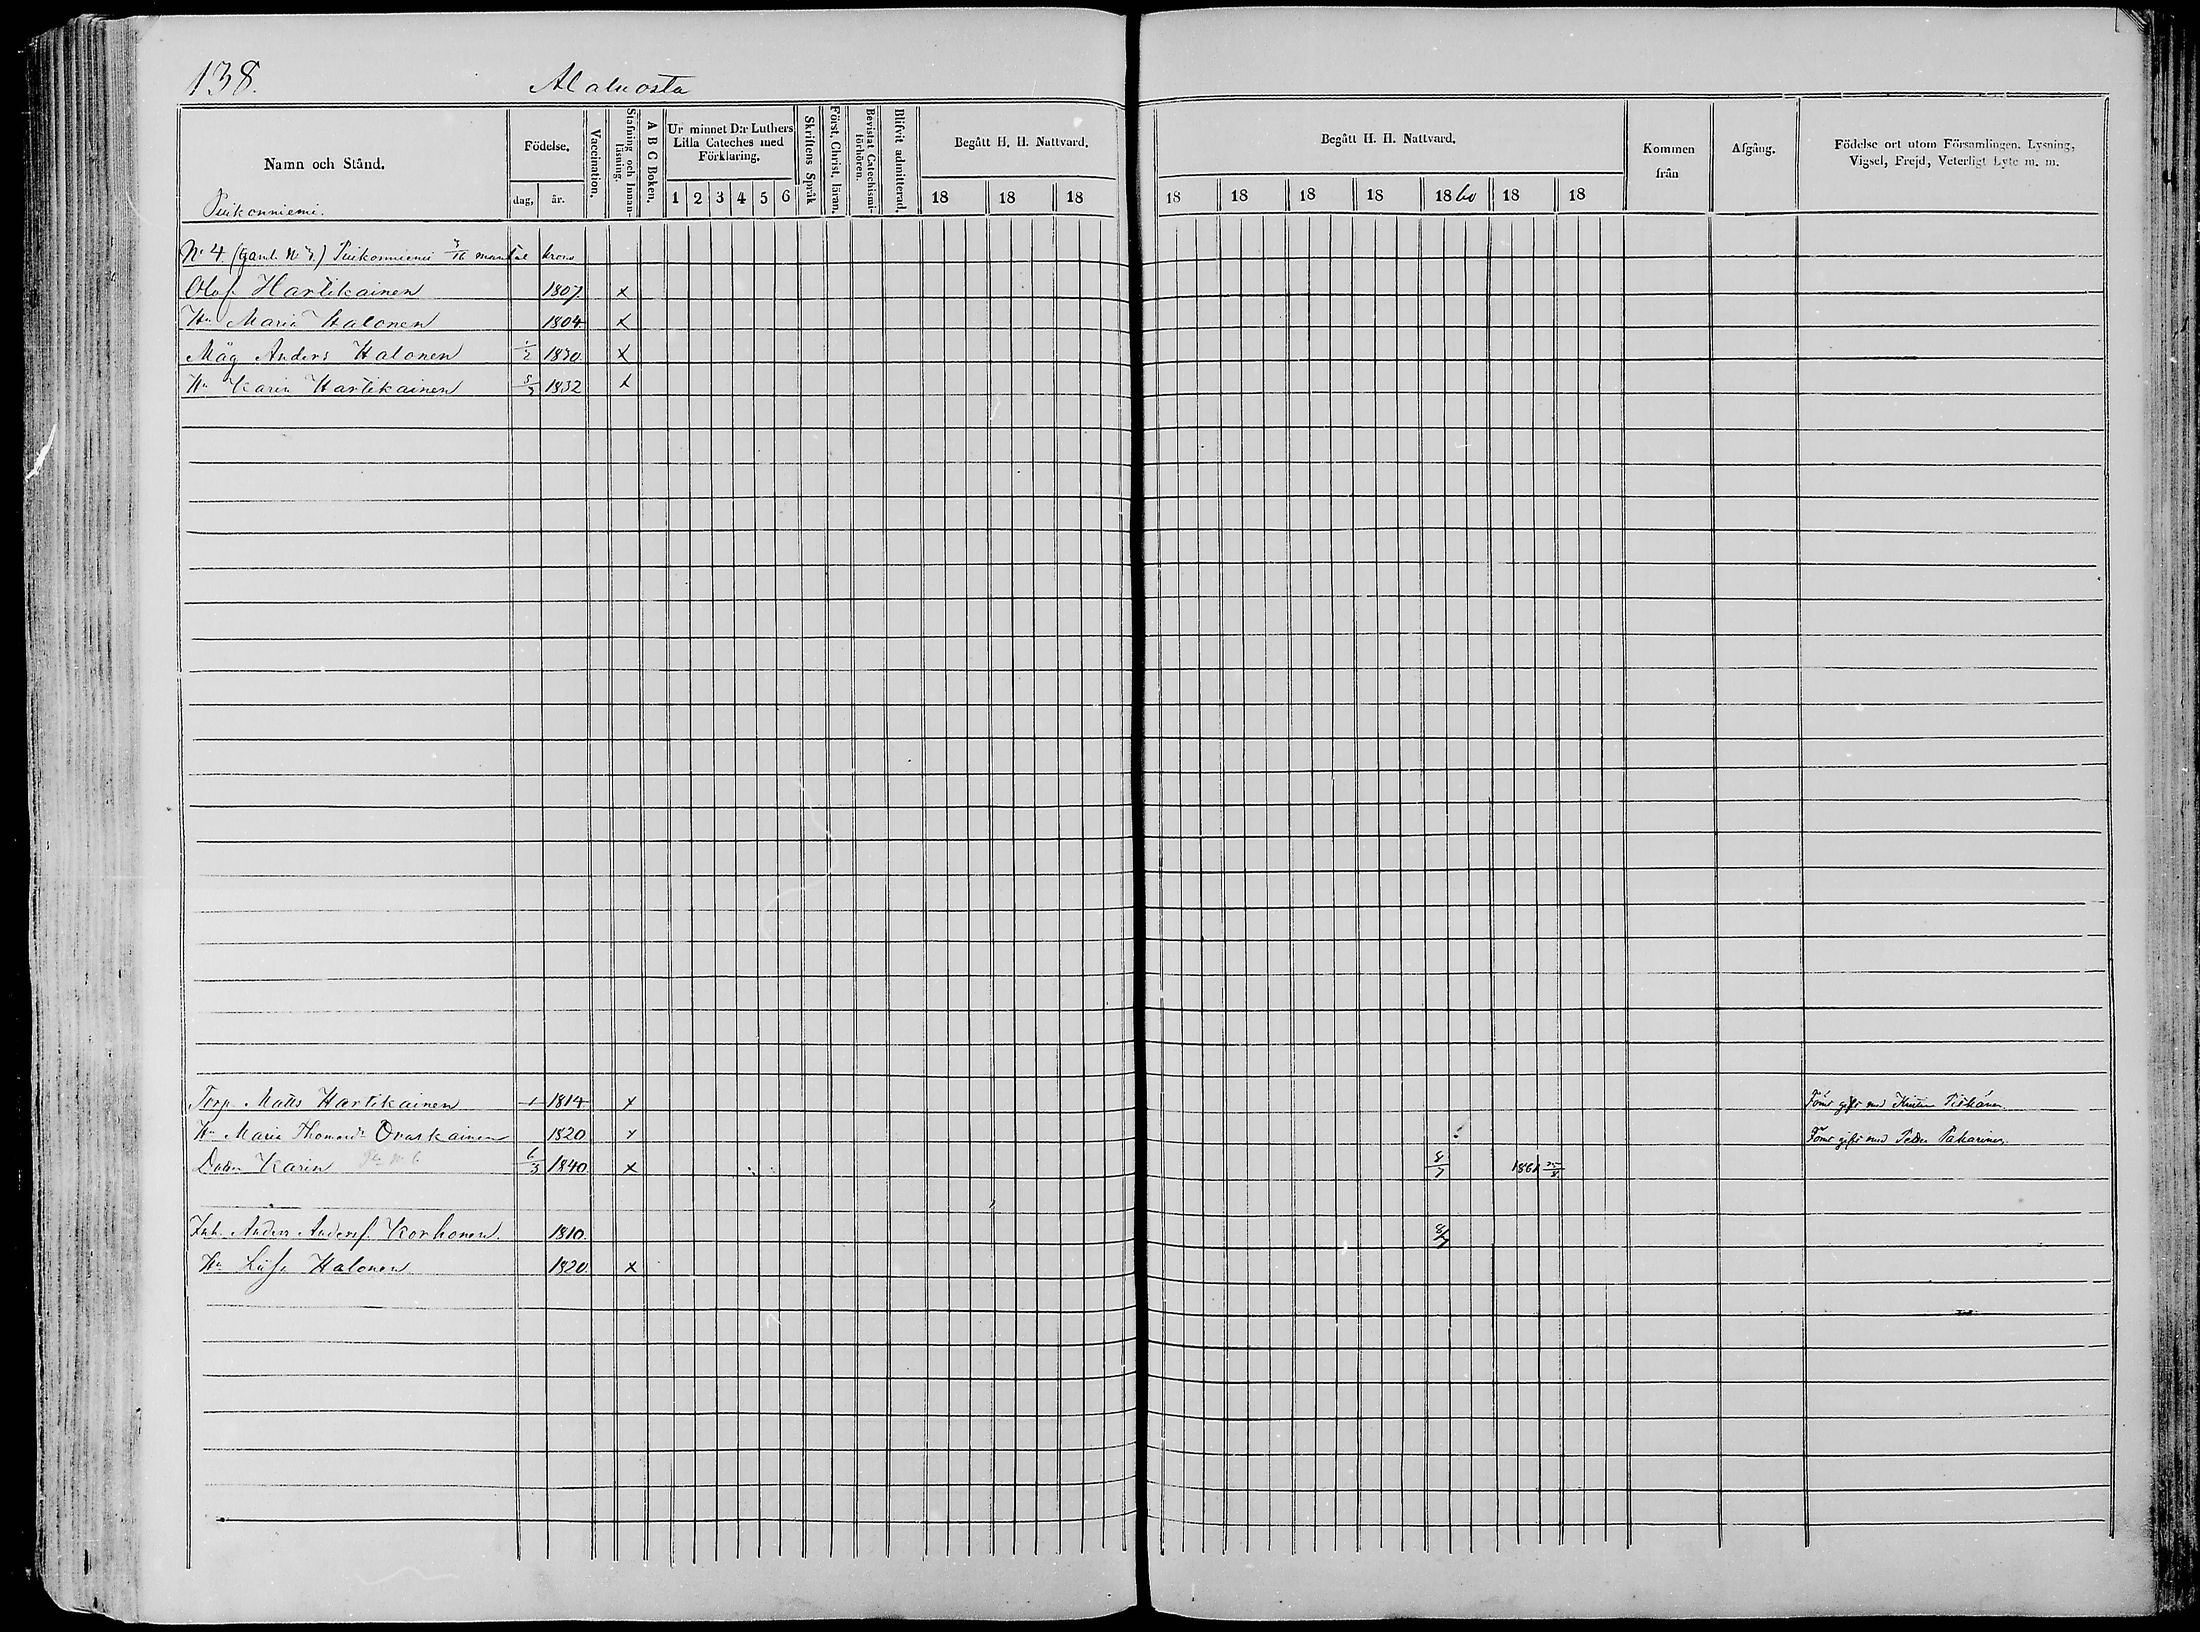 138.
Alaluosta
Namn och Stånd.
Födelse.
dag, år.
Vaccination.
Stafning och Innan-läsning.
A B C Boken.
Ur minnet D:r Luthers Lilla Cateches med Förklaring.
1 2 3 4 5 6
Skriftens Språk
Först. Christ. läran.
Bevistat Catechismi-förhören.
Blifvit admitterad.
Begått H. H. Nattvard.
18 18 18
Begått H. H. Nattvard.
18 18 18 18 1860 18 18
Kommen från
Afgång.
Födelse ort utom Församlingen. Lysning, Vigsel, Frejd, Veterligt Lyte m. m.
Piikonniemi.
No 4. (Gaml. No 7.) Piikonniemi 3/16 mantal krono
Olof Hartikainen 1807. x
Hu Maria Halonen 1804 x
Måg Anders Halonen 1/2 1830. x
Hu Karin Hartikainen 1832 x
Torp. Matts Hartikainen 1 1814 x Förut gift med
Hu Maria Thomasdr Ovaskainen 1820 x Förut gift med Petter Pakarinen
Dotter Karin 6/3 1840 x 8/7 1861
Inh. Anders Andersf. Korhonen. 1810. 8/7
Hu Lisa Halonen 1820 x